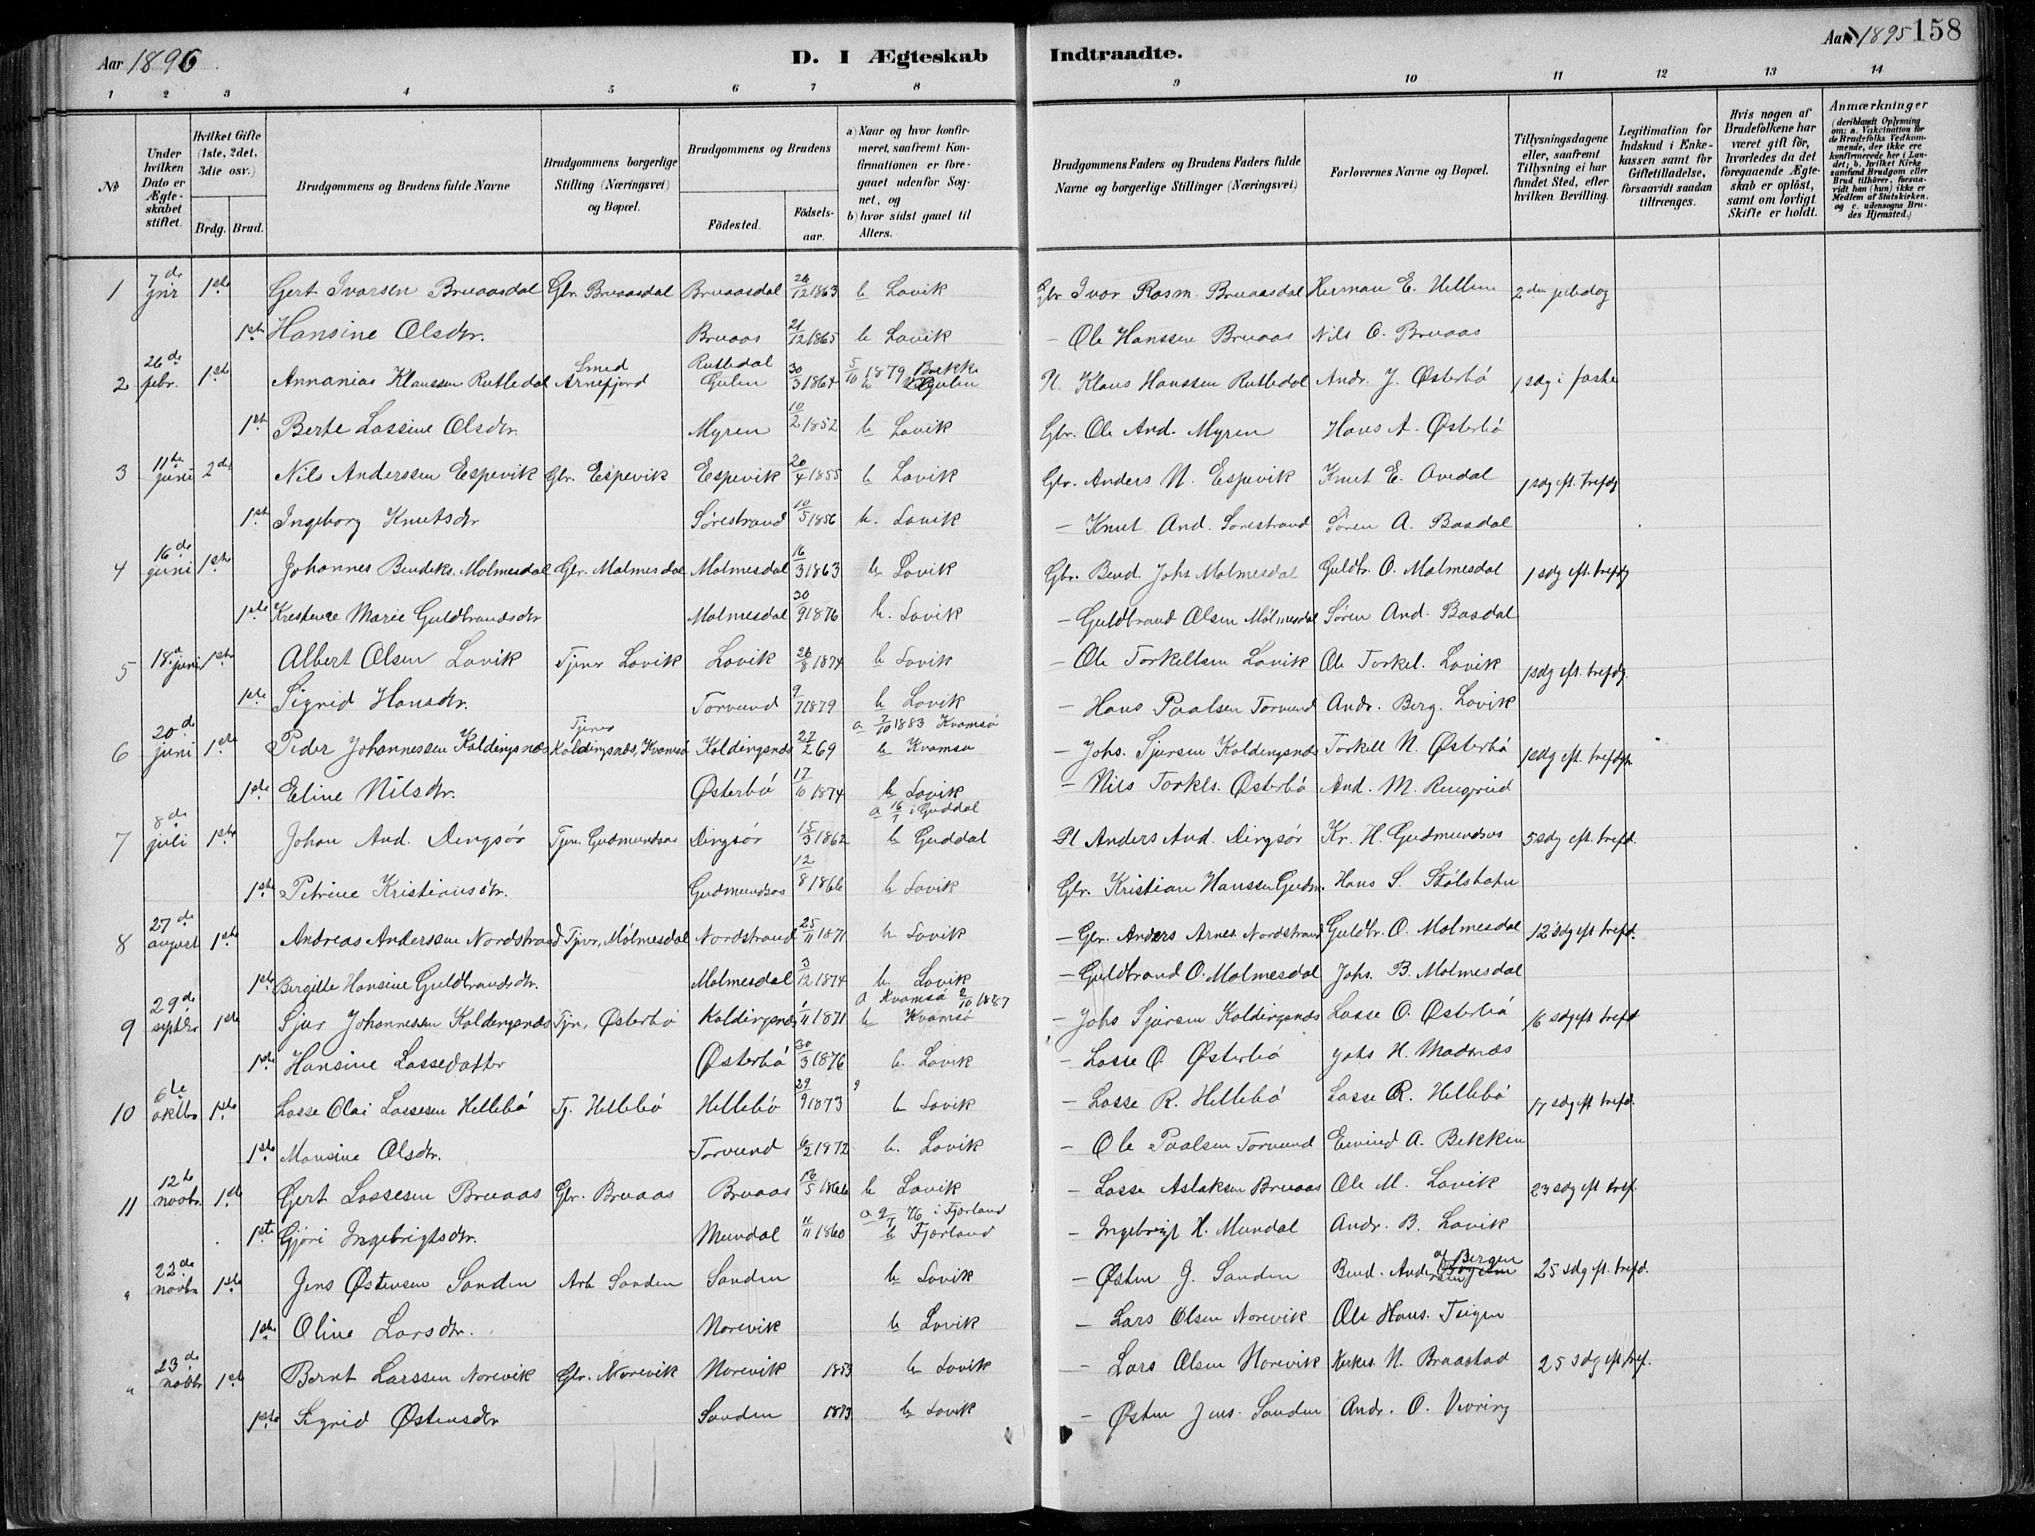 Aar 1896
D. I Ægteskab Indtraadte.
Aar 1895 158
1 2 3 4 5 6 7 8 9 10 11 12 13 14
No
Under hvilken Dato er Ægteskabet stiftet.
Hvilket Gifte (1ste, 2det, 3die osv.)
Brdg. Brud.
Brudgommens og Brudens fulde Navne
Brudgommens borgerlige Stilling (Næringsvei) og Bopæl.
Brudgommens og Brudens
Fødested. Fødselsaar.
a) Naar og hvor konfirmeret, saafremt Konfirmationen er foregaaet udenfor Sognet, og
b) hvor sidst gaaet til Alters.
Brudgommens Faders og Brudens Faders fulde Navne og borgerlige Stillinger (Næringsvei)
Forlovernes Navne og Bopæl.
Tillysningsdagene eller, saafremt Tillysning ei har fundet Sted, efter hvilken Bevilling.
Legitimation for Indskud i Enkekassen samt for Giftetilladelse, forsaavidt saadan tiltrænges.
Hvis nogen af Brudefolkene har været gift før, hvorledes da det foregaaende Ægteskab er opløst, samt om lovligt Skifte er holdt.
Anmærkninger (deriblandt Oplysning om: a. Vakcination for de Brudefolks Vedkommende, der ikke ere konfirmerede her i Landet; b. hvilket Kirkesamfund Brudgom eller Brud tilhører, forsaavidt han (hun) ikke er Medlem af Statskirken, og c. udensogns Brudes Hjemsted.)
1 7de jnr 1ste Gert Ivarsen Bruaasdal Gbr. Bruaasdal Bruaasdal 26/12 1863 b Lavik Gbr Ivar Rasm. Bruaasdal Herman E. Hellem 2den juledag
1ste Hansine Olsdtr. Bruaas 21/12 1865 b Lavik — Ole Hanssen Bruaas Nils O. Bruaas
2 26de febr. 1ste Annanias Klaussen Rutledal Smed Arnefjord Rutledal Gulen 30/3 1864 5/10 1879 Brekke b Gulen Pl. Klaus Hanssen Rutledal Andr. J. Østerbø 1 sdg i faste
1ste Berte Lassine Olsdtr. Myren 10/2 1852 b Lavik Gbr. Ole And. Myren Hans A. Østerbø
3 11te juni 2det Nils Anderssen Espevik Gbr. Espevik Espevik 20/4 1855 b Lavik Gbr. Anders N. Espevik Knut E. Avedal 1 sdg eft. trefdg
1ste Ingeborg Knutsdtr Sørestrand 10/5 1856 b. Lavik — Knut And. Sørestrand Søren A. Basdal
4 16de juni 1ste Johannes Bendiks. Molmesdal Gbr. Molmesdal Molmesdal 16/3 1863 b Lavik Gbr. Bend. Johs Molmesdal Guldbr. O. Molmesdal 1 sdg eft. trefdg
1ste Marie Guldbrandsdtr Molmesdal 30/9 1876 b. Lavik — Guldbrand Olsen Mølmesdal Søren And. Basdal
5 18d juni 1ste Albert Olsen Lavik Tjener Lavik Lavik 26/8 1874 b Lavik — Ole Torkellsen Lavik Ole Torkel. Lavik 1 sdg eft. trefdg.
1ste Sigrid Hansdtr. Torvund 9/7 1879 b Lavik — Hans Paalsen Torvund Andr. Berg. Lavik
6 20de juni 1ste Peder Johannessen Koldingsnæs Tjener Koldingsnæs, Kvamsø Koldingsnæs 27/2 69 a 7/10 1883 Kvamsø b Kvamsø — Johs. Sjursen Koldingsnæs Torkell N. Østerbø 1 sdg eft. trefdg
1ste Eline Nilsdtr. Østerbø 17/10 1874 b Lavik — Nils Torkels. Østerbø And. M. Ringereid
7 8de juli 1ste Johan And. Dingsør Tjen. Gudmundsos Dingsør 15/3 1862 a 16/7 i Guddal b Guddal Pl Anders And. Dingsør Kr. H. Gudmundsos 5 sdg eft. trefd.
1ste Petrine Kristiansdtr. Gudmundsos 12/8 1866 b Lavik Gbr. Kristian Hanssen Gudm. Hans S. Stølshavn
8 27de august 1ste Andreas Anderssen Nordstrand Tjnr, Mølmesdal Nordstrand 25/11 1871 b Lavik — Gbr. Anders Arnes. Nordstrand Guldbr. O. Molmesdal 12 sdg eft trefd.
1ste Birgitte Hansine Guldbrandsdtr. Molmesdal 3/12 1874 b Lavik — Guldbrand O. Molmesdal Johs. B. Molmesdal
9 29de septbr 1ste Sjur Johannessen Koldingsnæs Tjn, Østerbø Koldingsnæs 1/11 1871 a Kvamsø 2/10 1887 b Kvamsø — Johs Sjursen Koldingsnæs Lasse O. Østerbø 16 sdg eft trefd
1ste Hansine Lassedatter Østerbø 30/3 1876 b. Lavik — Lasse O. Østerbø Johs H. Madnæs
10 6te oktbr 1ste Lasse Olai Lassesen Hellebø Tj. Hellebø Hellebø 29/9 1873 b Lavik — Lasse R. Hellebø Lasse R. Hellebø 17 sdg eft trefd.
1ste Mansine Olsdtr. Torvund 6/2 1872 b. Lavik — Ole Paalsen Torvund Eivind A. Bekken
11 12te novbr. 1ste Gert Lassesen Bruaas Gbr. Bruaas Bruaas 10/5 1866 b Lavik — Lasse Aslaksen Bruaas Ole M. Lavik 23 sdg eft tref.
1ste Gjøri Ingebrigtsdtr. Mundal 11/11 1860 a 9/7 76 i Fjærland b Fjærland — Ingebrigt H. Mundal Andr. B. Lavik
" 22de novbr 1ste Jens Østensen Sanden Arb Sanden Sanden b Lavik — Østen J. Sanden Bend. Anders af Bergen 25 sdg eft. trefd.
1ste Oline Larsdtr. Norevik b Lavik — Lars Olsen Norevik Ole Hans. Teigen
" 23de novbr 1ste Bernt Larssen Norevik Gbr. Norevik Norevik 1853 b Lavik — Lars Olsen Norevik N. Braastad 25 sdg eft tref.
1ste Sigrid Østensdtr Sanden 1873 b Lavik — Østen Jens. Sanden Andr. O. Vioring